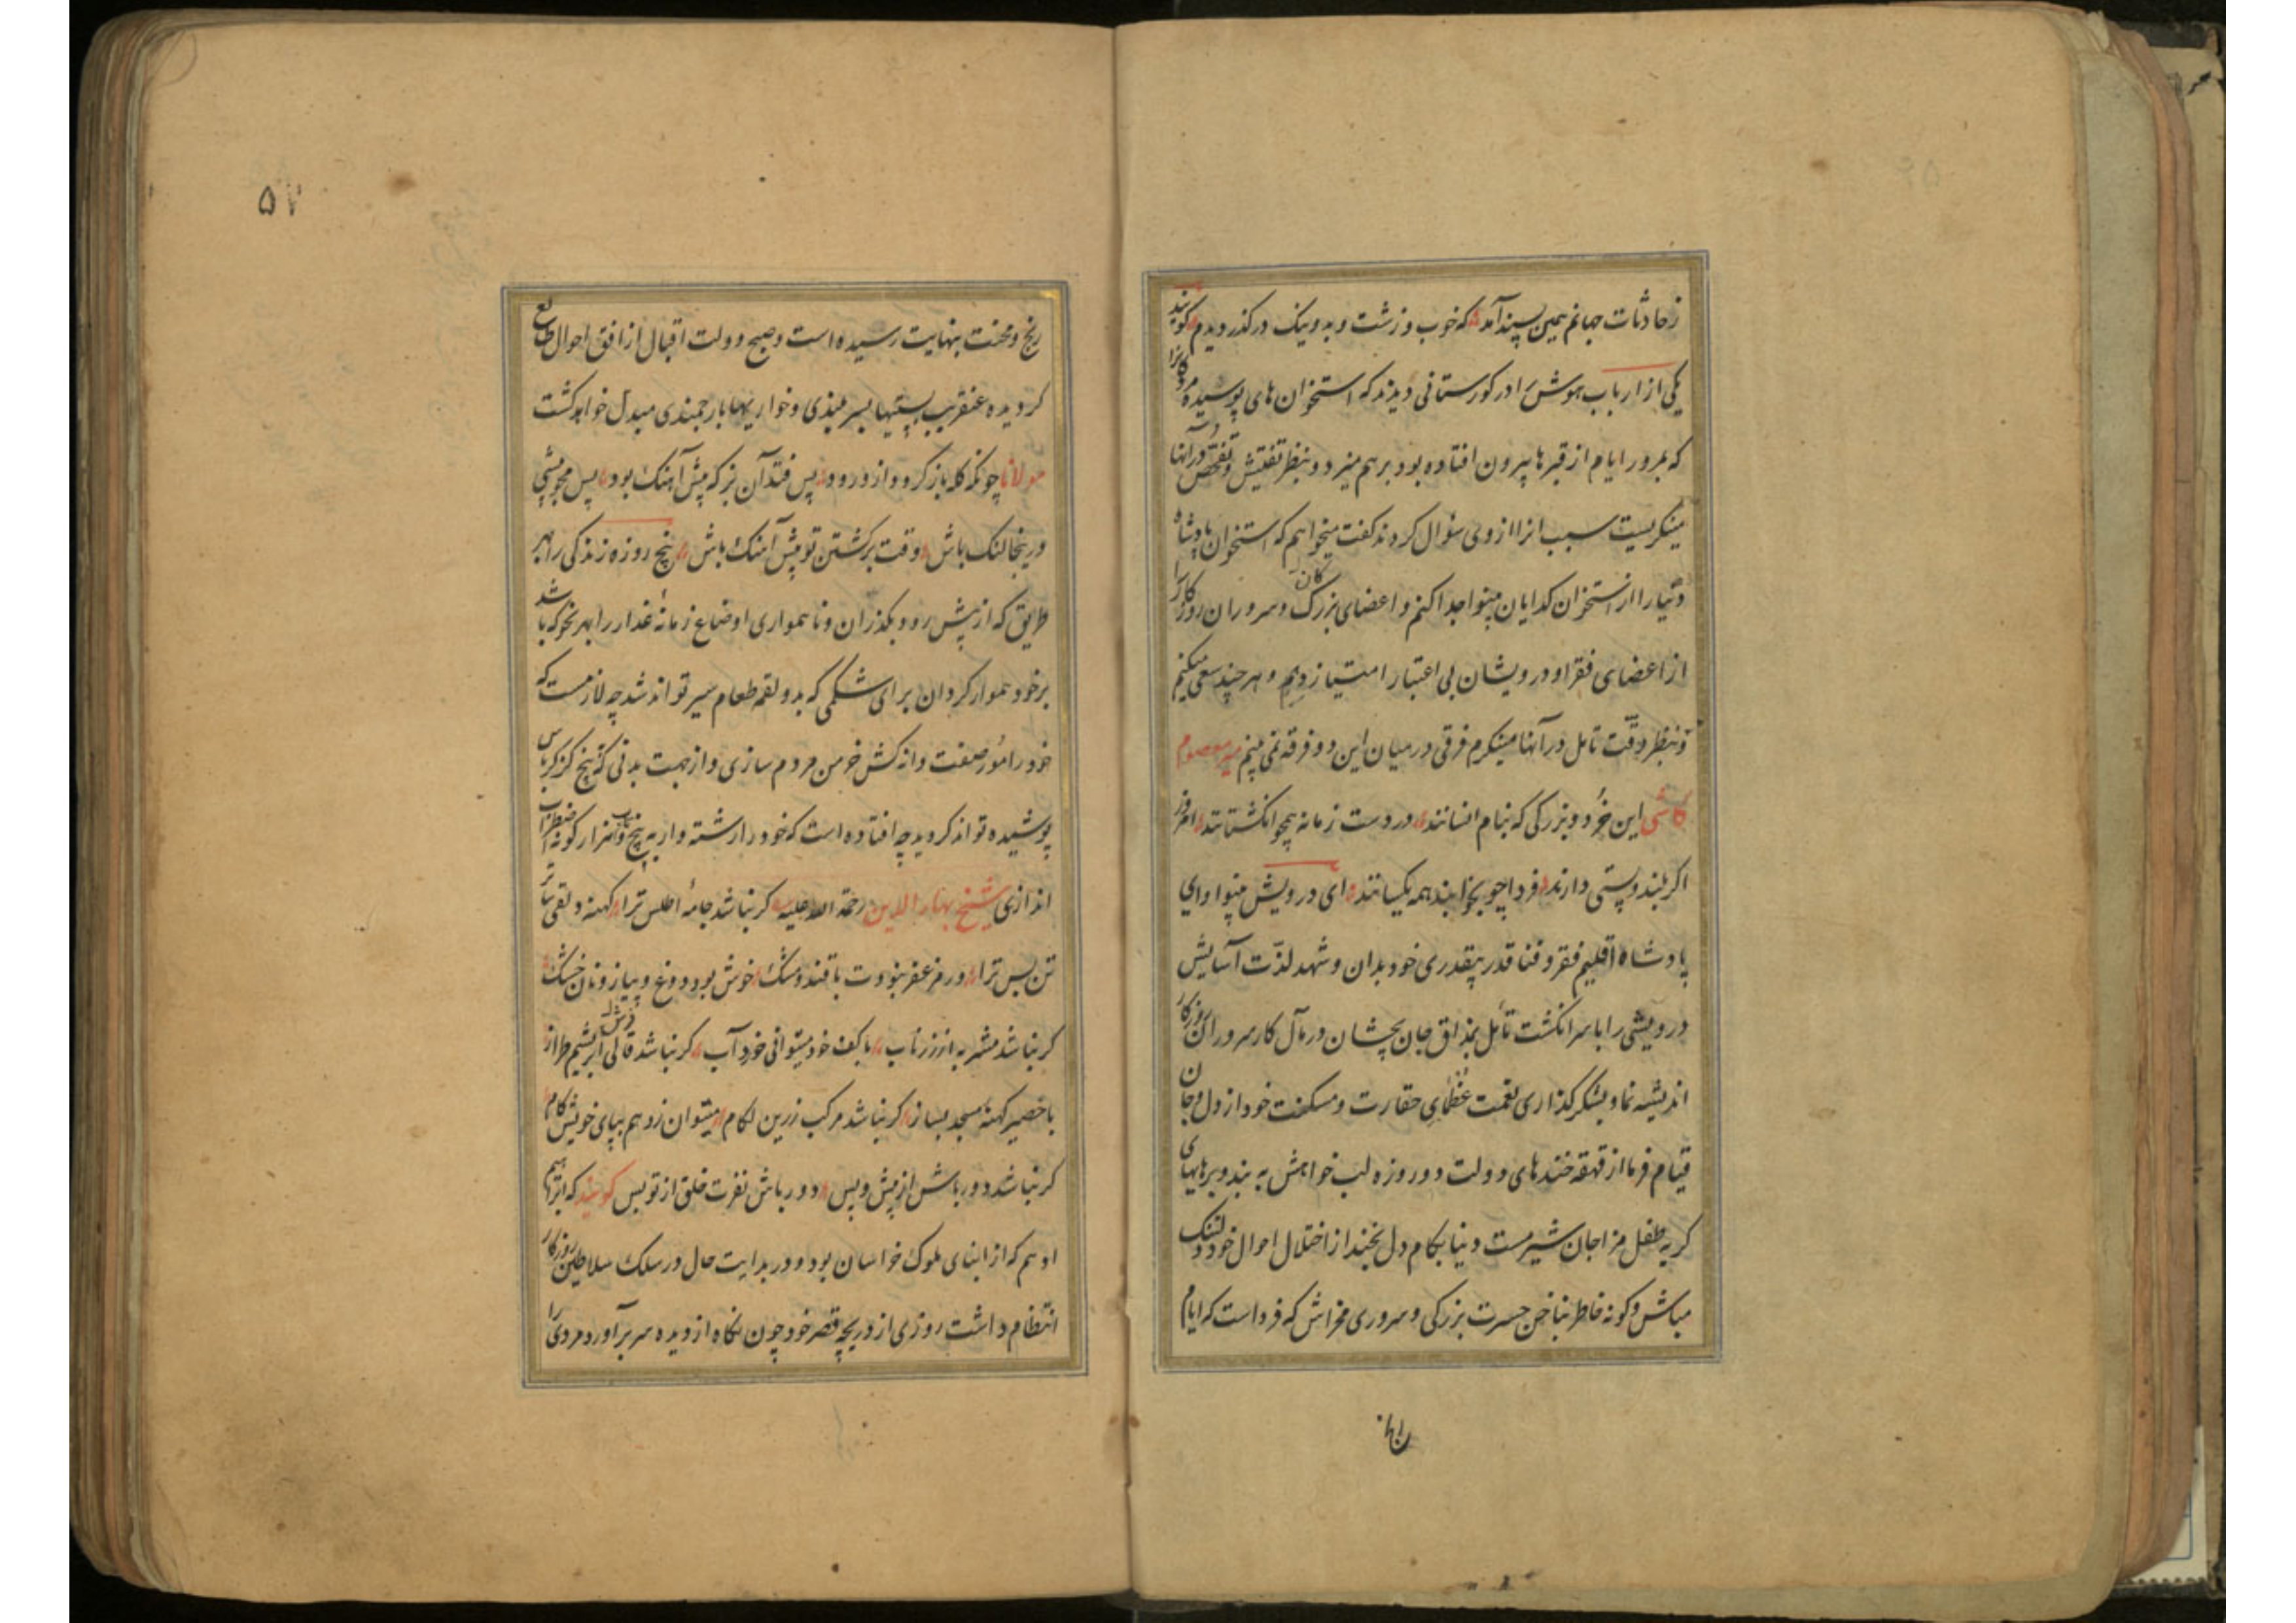 زحادثات جهانم همین پسند آمد که خوب و زشت و بد و نیک در گذر دیدم گویند
یکی از ارباب هوش را در کورستانی دیدند که استخوان های پوسیده مردکانرا
که بمرور ایام از قبرها بیرون افتاده بود برهم میزد و بنظر تفتیش و تفحص در آنها
مینکریست سبب انرا از وی سؤال کردند کفت میخواهم که استخوان پادشاه
دنیا را از استخوان کدایان بینوا جدا کنم و اعضای بزرک کان و سروران روزکار را
از اعضای فقرا و درویشان بی اعتبار امتیاز دهم و هر چند سعی میکنم
و بنظر دقت تامل در آنها مینکرم فرقی در میان این دو فرقه نمی بینم میر معصوم
کاشی این خرد و بزرکی که بنام انسانند در دست زمانه همچو انکشتانند امروز
اکر بلند و پستی دارند فردا چو بخوابند همه یکسانند ای درویش بینوا و ای
پادشاه اقلیم فقر و فنا قدر بیقدری خود بدان و شهد لذت آسایش
درویشی را با سر انکشت تأمل بمذاق جان بچشان در مآل کار سروران روزکار
اندیشه نما و بشکر گذاری نعمت عظمای حقارت و مسکنت خود از دل و جان
قیام فرما از قهقه خندهای دولت دو روزه لب خواهش به بند و برهایهای
کریه طفل مزاجان شیرمست دنیا بکام دل بخند از اختلال احوال خود دلتنک
مباش و کونه خاطر بناخن حسرت بزرکی و سروری مخراش که فرداست که ایام
۵۷
رنج و محنت بنهایت رسیده است و صبح دولت اقبال از افق احوال طالع
کردیده عنقریب پستیها بسر بلندی و خواریها بارجمندی مبدل خواهد کشت
مولانا چونکه کله باز کردد از ورود پس فتد آن بز که پیش آهنک بود پس همچو پیشی
در ینجا لنک باش وقت برکشتن تو پیش آهنک باش پنچ روزه زندکی را بهر
طریق که از پیش رود بکذران و ناهمواری اوضاع زمانهٔ غدار را بهر نحو که باشد
بر خود هموار کردان برای شکمی که بدو لقمه طعام سیر تواند شد چه لازمست که
خود را مور صفت دانه کش خرمن مردم سازی و از جهت بدنی که پنج کز کرباس
پوشیده تواند کردید چه افتاده است که خود را رشته وار به پیچ و تاب هزار کونه اضطراب
اندازی شیخ بهاء الدین رحمة الله علیه کر نباشد جامهٔ اطلس ترا کهنه دلقی ساتر
تن بس ترا ور مزعفر نبودت با قند و مشک خوش بود دوغ و پیاز و نان خشک
کر نباشد مشربه از زر ناب با کف خود میتوانی خورد آب کر نباشد فرش قالی ابریشم طراز
با حصیر کهنهٔ مسجد بساز کر نباشد مرکب زرین لکام میتوان زد هم بپای خویش کام
کر نباشد دور باش از پیش و پس دور باش نفرت خلق از تو بس کویند که ابراهیم
ادهم که از ابنای ملوک خراسان بود و در بدایت حال در سلک سلاطین روزکار
انتظام داشت روزی از دریچه قصر خود چون نکاه از دیده سر بر آورد مردی را